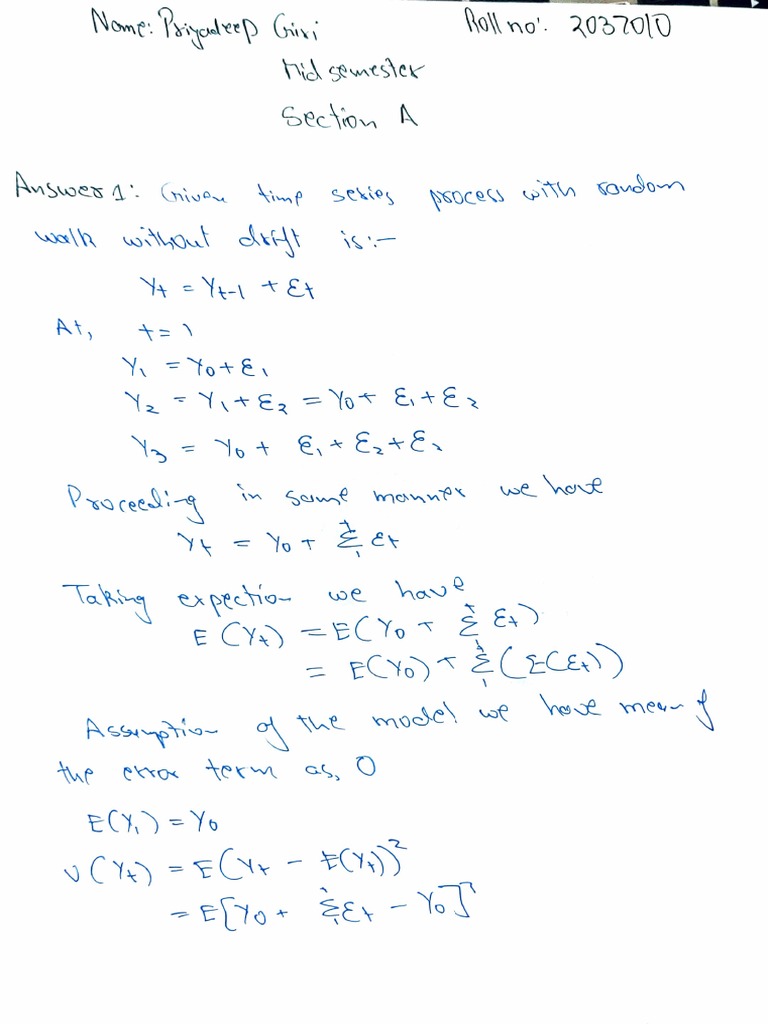 Name: Priyadeep Giri Roll no: 2037010
Mid semester
Section A
Answer 1: Given time series process with random
walk without drift is:-
Yt = Yt-1 + Ɛt
At, t = 1
Y1 = Y0 + Ɛ1
Y2 = Y1 + Ɛ2 = Y0 + Ɛ1 + Ɛ2
Y3 = Y0 + Ɛ1 + Ɛ2 + Ɛ3
Proceeding in same manner we have
Yt = Y0 + Σ₁ᵗ Ɛt
Taking expection we have
E(Yt) = E(Y0 + Σᵗ Ɛt)
= E(Y0) + Σ₁ᵗ (E(Ɛt))
Assumption of the model we have mean of
the error term as, 0
E(Y1) = Y0
V(Yt) = E(Yt - E(Yt))²
= E[Y0 + Σ₁ᵗ Ɛt - Y0]²